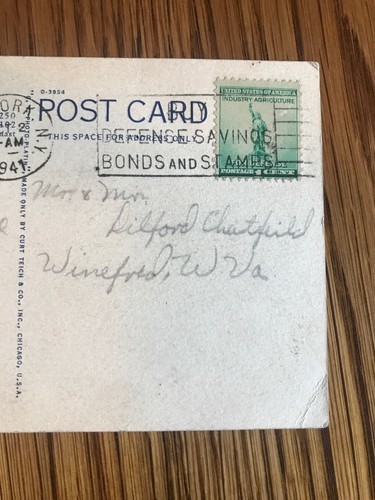 O-3954
POST CARD
THIS SPACE FOR ADDRESS ONLY
N.Y.
AM
1941
BUY
DEFENSE SAVINGS
BONDS AND STAMPS
UNITED STATES OF AMERICA
INDUSTRY AGRICULTURE
POSTAGE 1 CENT
Mr. & Mrs.
Dilford Chatfield
Winefred, W Va
MADE ONLY BY CURT TEICH & CO., INC., CHICAGO, U.S.A.